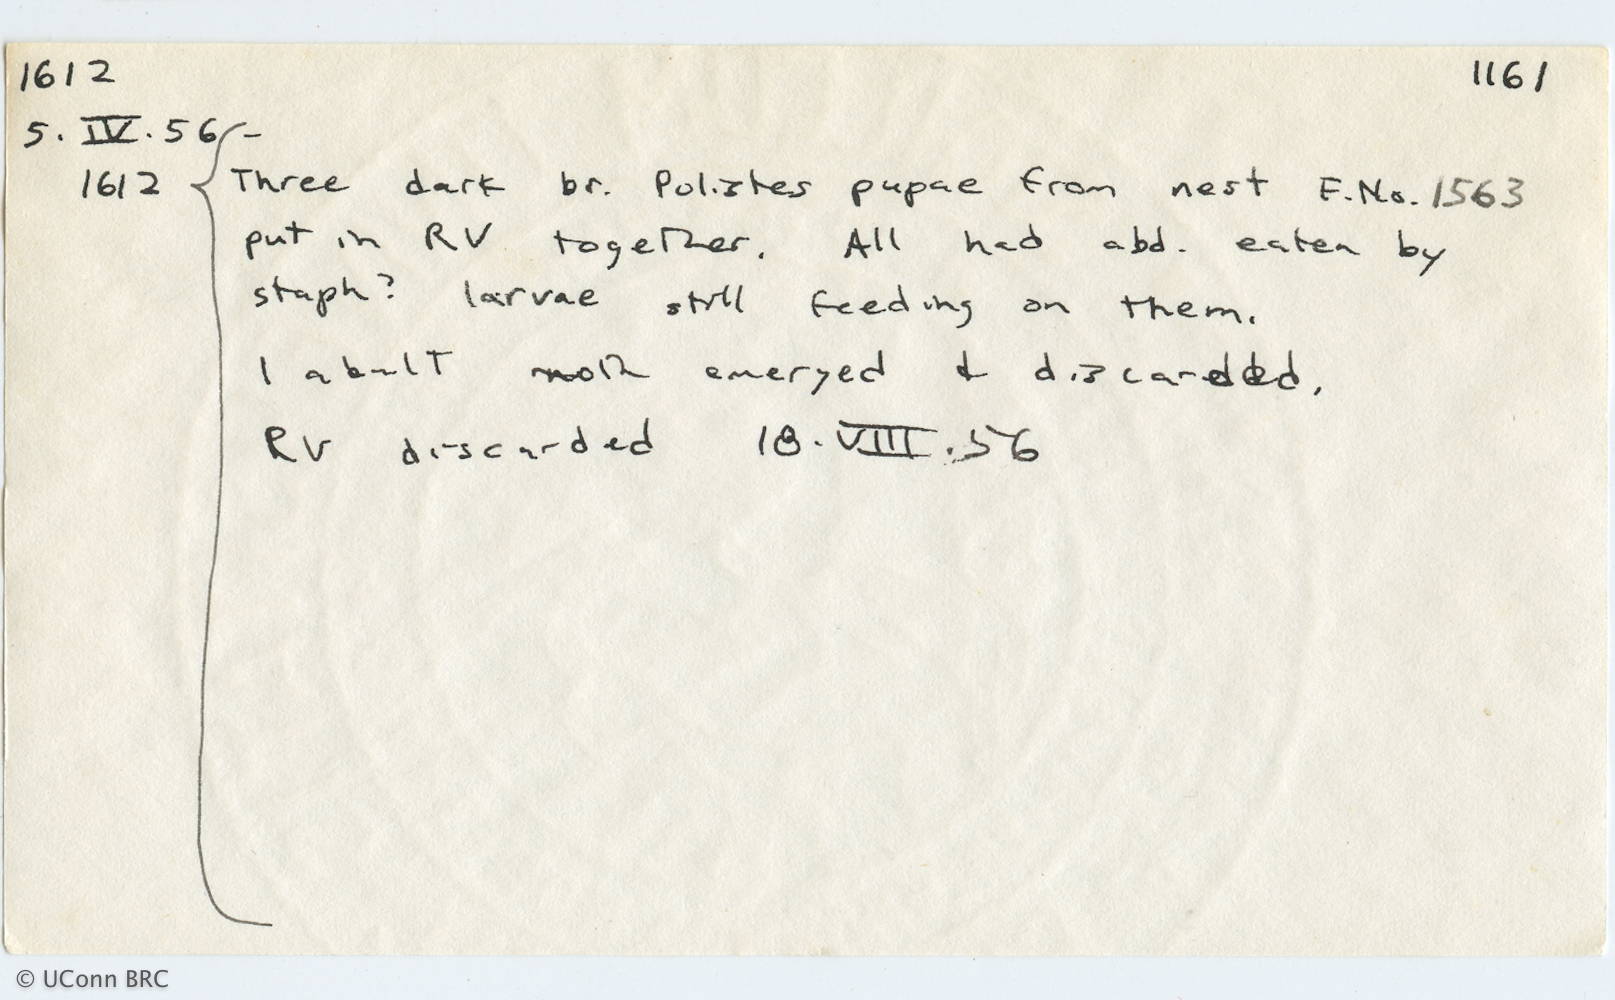 1612 1161
5. IV. 56 -
1612 Three dark br. Polistes pupae from nest F.No. 1563
put in RV together. All had abd. eaten by
staph? larvae still feeding on them.
1 abult moth emerged & discardded.
RV discarded 18. VIII. 56
© UConn BRC